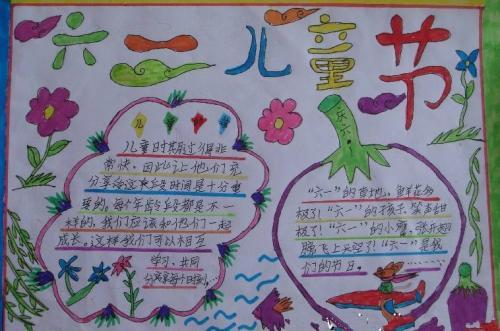 六一儿童节
儿童时期过得非
常快。因此让他们充
分享受这段时间是十分重
要的，每个年龄段都是不一
样的，我们应该和他们一起
成长。这样我们可以相互
学习、共同
分享每个时刻…
庆六一
"六一"的草地，鲜花多
极了！"六一"的孩子，笑声甜
极了！"六一"的小鹰，张开翅
膀飞上天空了！"六一"是我
们的节日。